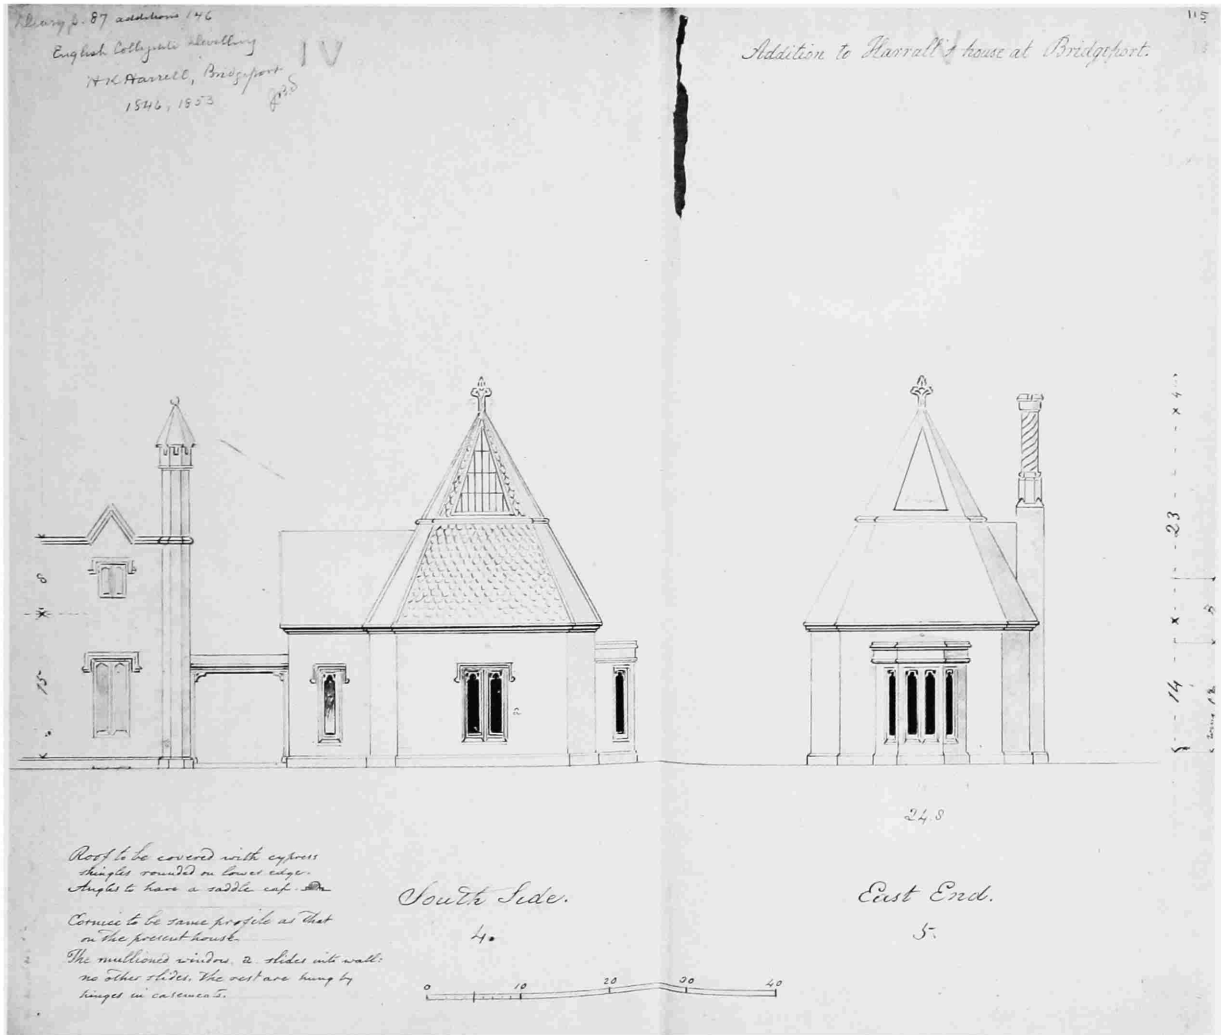 Diary p. 87 additions 146
English Collegiate Dwelling
H K Harrell, Bridgeport
1846, 1853
IV
115
Addition to Harrall's house at Bridgeport.
8
15
a
4
23
14
24.8
Roof to be covered with cypress
shingles rounded on lower edge.
Angles to have a saddle cap.
Cornice to be same profile as that
on the present house.
The mullioned window, a. slides into wall:
no other slides. The rest are hung by
hinges in casements.
South Side.
4.
East End.
5.
0 10 20 30 40